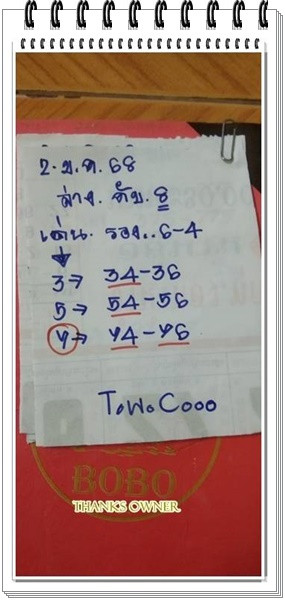 2.ม.ค.68
ล่าง.ดับ.8
เด่น.รอง..6-4
3→ 34-36
5→ 54-56
4→ 44-46
T.W.Cooo
BOBO
THANKS OWNER